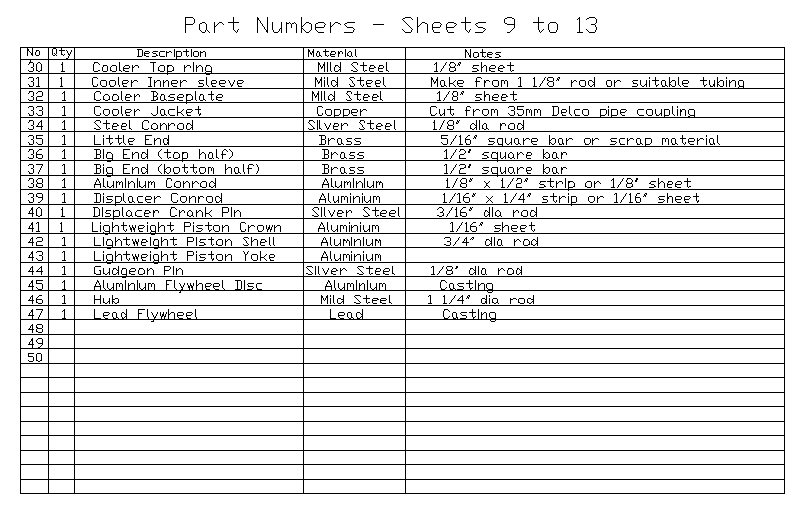 Part Numbers - Sheets 9 to 13
No Qty Description Material Notes
30 1 Cooler Top ring Mild Steel 1/8" sheet
31 1 Cooler Inner sleeve Mild Steel Make from 1 1/8" rod or suitable tubing
32 1 Cooler Baseplate Mild Steel 1/8" sheet
33 1 Cooler Jacket Copper Cut from 35mm Delco pipe coupling
34 1 Steel Conrod Silver Steel 1/8" dia rod
35 1 Little End Brass 5/16" square bar or scrap material
36 1 Big End (top half) Brass 1/2" square bar
37 1 Big End (bottom half) Brass 1/2" square bar
38 1 Aluminium Conrod Aluminium 1/8" x 1/2" strip or 1/8" sheet
39 1 Displacer Conrod Aluminium 1/16" x 1/4" strip or 1/16" sheet
40 1 Displacer Crank Pin Silver Steel 3/16" dia rod
41 1 Lightweight Piston Crown Aluminium 1/16" sheet
42 1 Lightweight Piston Shell Aluminium 3/4" dia rod
43 1 Lightweight Piston Yoke Aluminium
44 1 Gudgeon Pin Silver Steel 1/8" dia rod
45 1 Aluminium Flywheel Disc Aluminium Casting
46 1 Hub Mild Steel 1 1/4" dia rod
47 1 Lead Flywheel Lead Casting
48
49
50